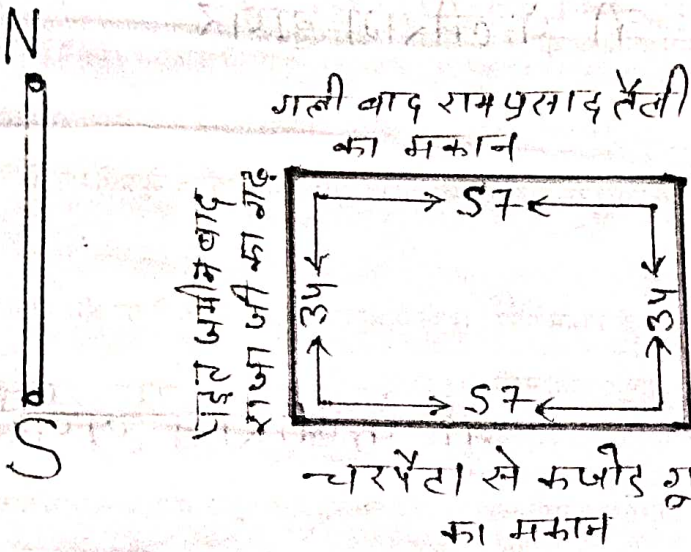 N
गली बाद रामप्रसाद तैली
का मकान
पाइट जमीन बाद
राजा जी का गढ़
57
34
34
57
S
चरपैटा से कजोड गू
का मकान